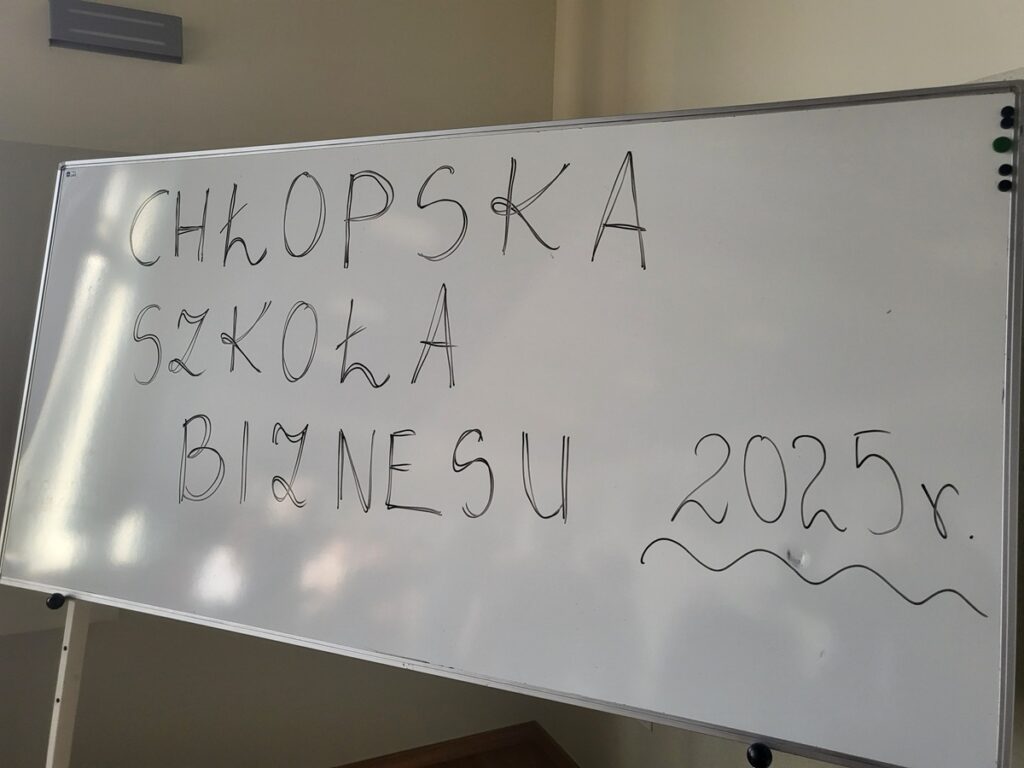 CHŁOPSKA
SZKOŁA
BIZNESU 2025r.